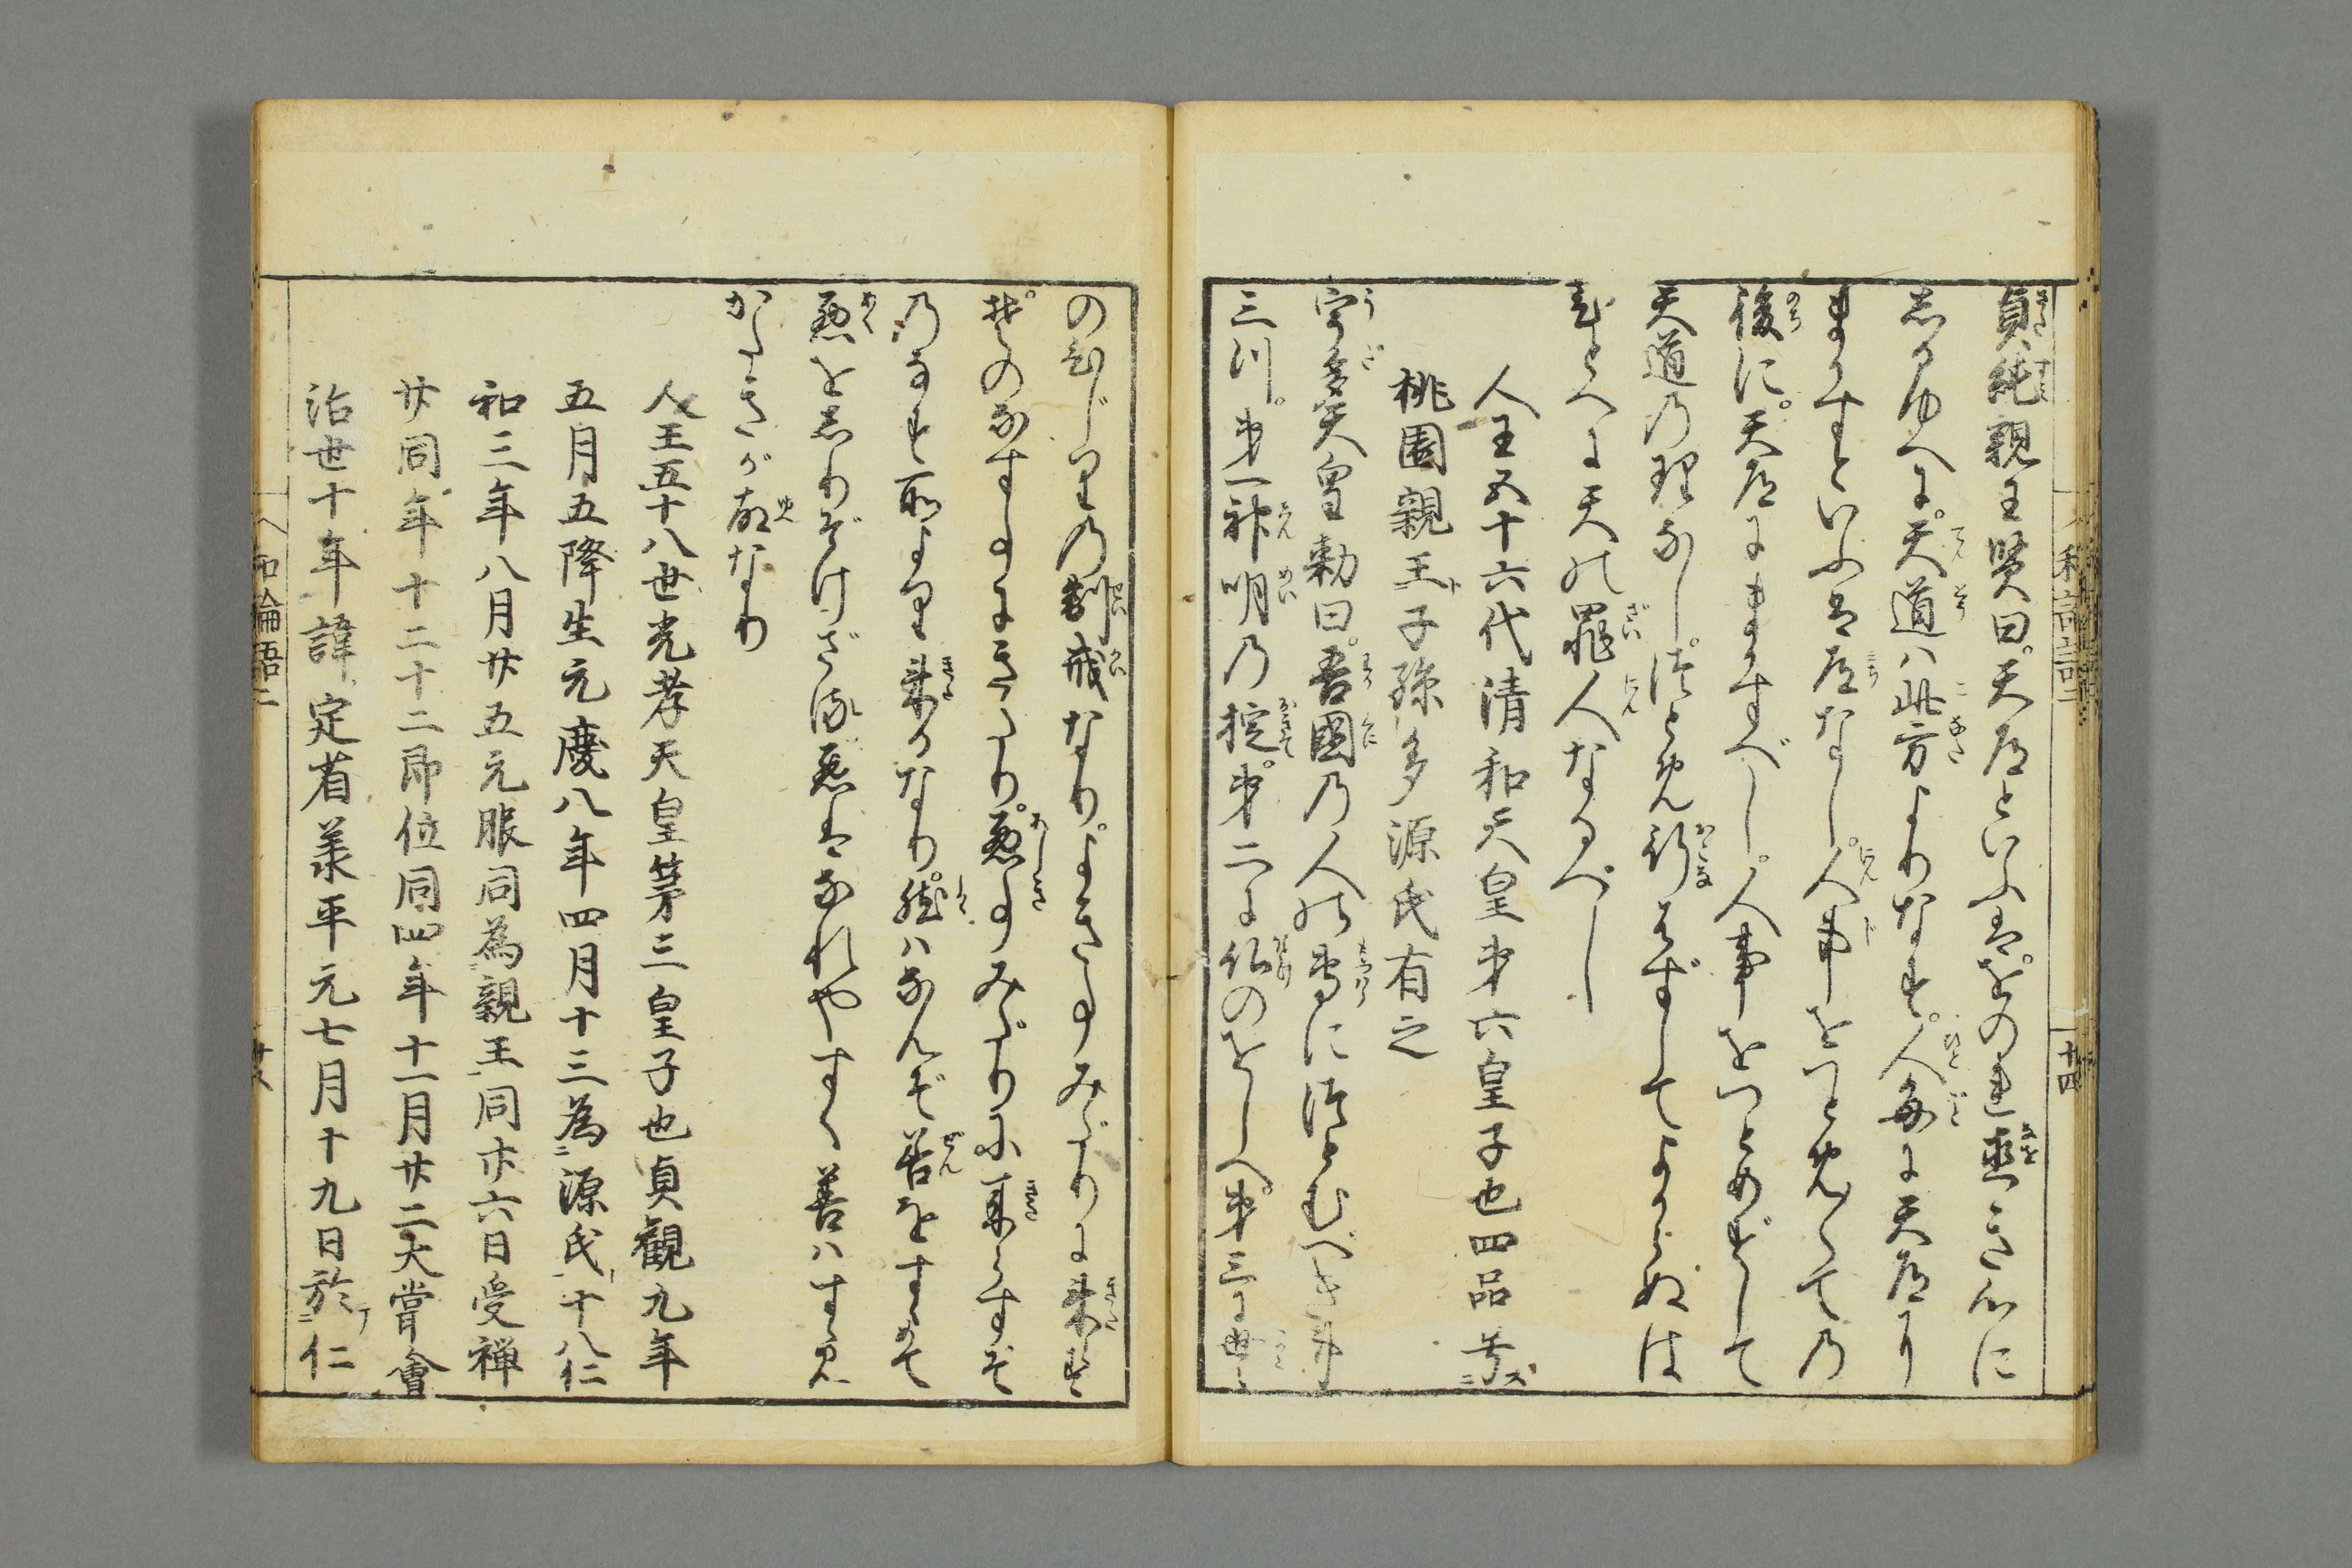 貞純親王賢曰。天道といふは。をのれ直き心に
あるゆへに。天道ハ此方よりなす。人毎に天道に
まかすといふは道なし。人事をつとめての
後に。天道にまかすべし。人事をつとめずして
天道の理なし。つとめ行はずしてよからぬは
ひとへに天の罪人なるべし
人王五十六代清和天皇第六皇子也四品号ス
桃園親王ト子孫多源氏有之
宇多天皇勅曰。吾國の人の専につとむべき事
三川。第一神明の掟。第二に仏のをしへ。第三に
のひじりの制戒なり。よき事みだりに来ず
其もののなす事にきたり。悪事みだりに来らずぞ
のなす所より来るなり。然ハなんぞ善をすゝめて
悪をしりぞけざる。悪はなれやすく善ハすゝみ
がたきが故なり
人王五十八世光孝天皇第三皇子也貞観九年
五月五降生元慶八年四月十三為源氏十八仁
和三年八月廿五元服同為親王同廿六日受禅
廿同年十二十二即位同四年十一月廿二大嘗會
治世十年諱定省兼平元七月十九日於仁
和論語二
十四